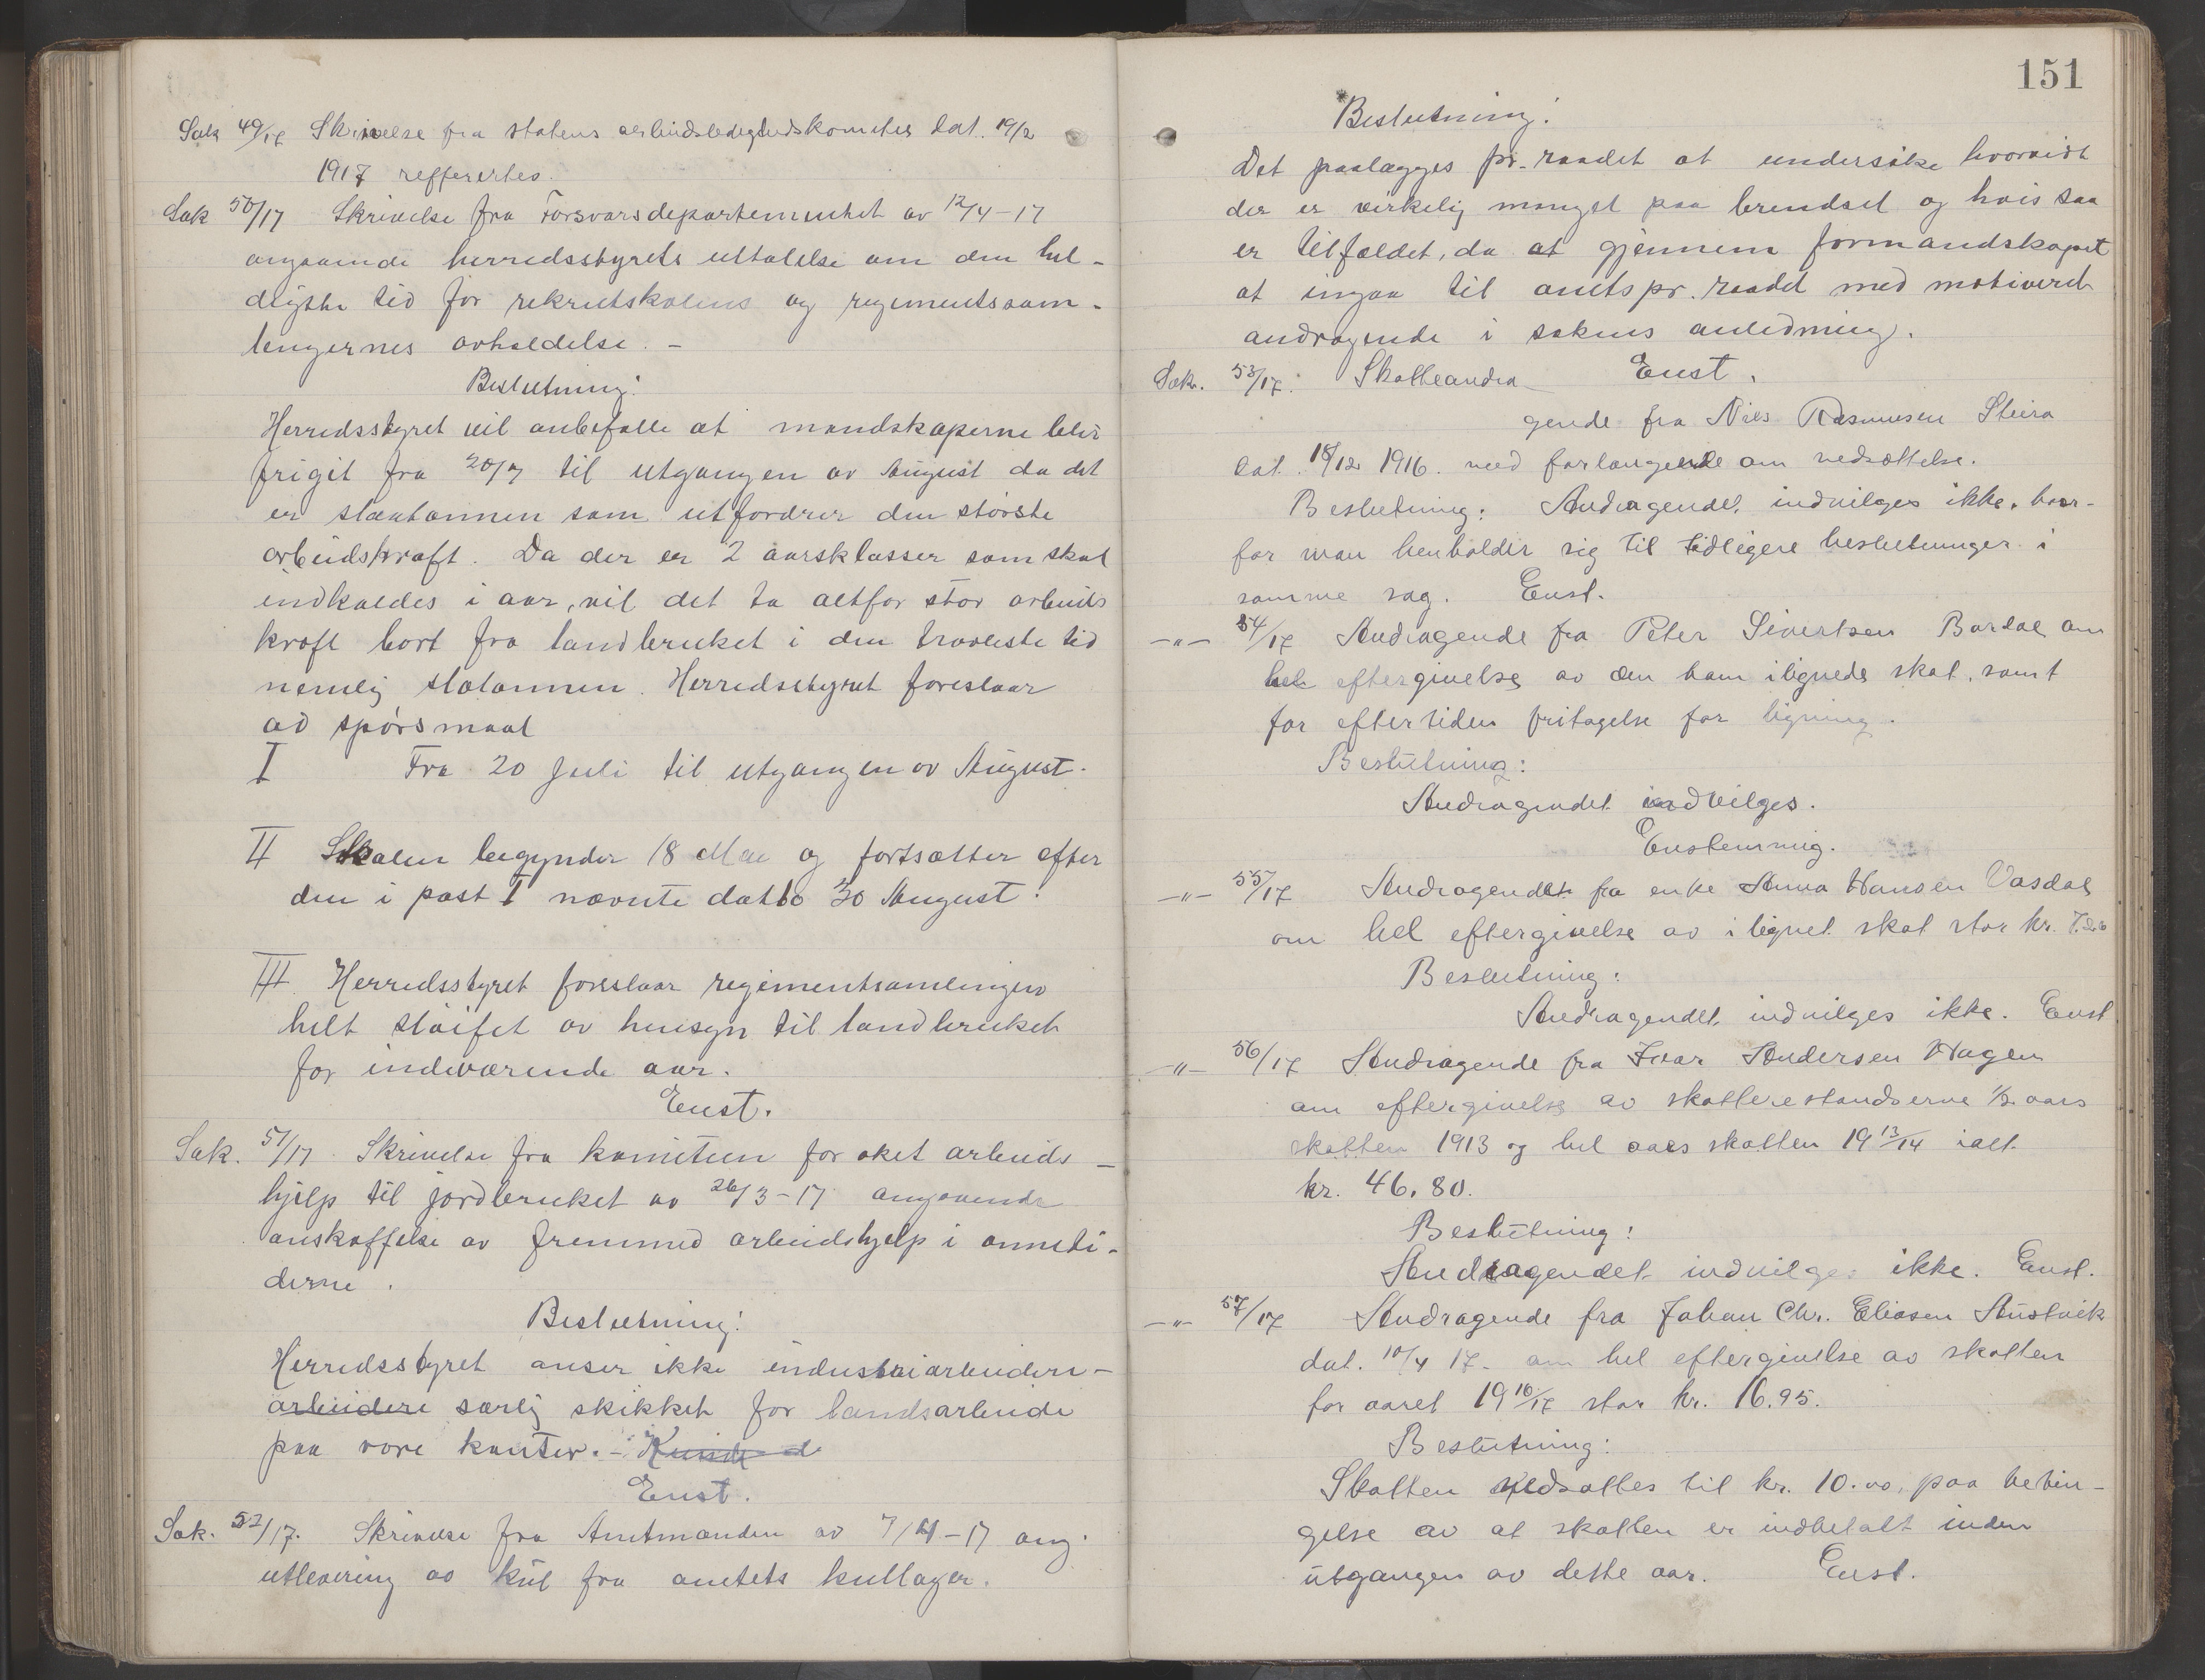 Sak 49/17 Skrivelse fra statens arbeidsledighedskomite dat. 19/2
1917 refferertes.
Sak 50/17 Skrivelse fra Forsvarsdepartementet av 12/4-17
angaaende herredsstyrets uttalelse om den hel-
digste tid for rekrutskolens og regimentssam-
lingernes avholdelse. -
Beslutning:
Herredsstyret vil anbefalle at mandskaperne blir
frigit fra 20/7 til utgangen av August da det
er slaatonnen som utfordrer den største
arbeidskraft. Da der er 2 aarsklasser som skal
indkaldes i aar, vil det ta altfor stor arbeids
kraft bort fra landbruket i den traveleste tid
nemlig slatonnen. Herredsstyret foreslaar
ad spørsmaal
I Fra 20 Juli til utgangen av August.
II Skolen begynder 18 Mai og fortsætter efter
den i post I nævnte datto 30 August.
III Herredsstyret foreslaar regimentsamlingen
helt sløifet av hensyn til landbruket
for indeværende aar.
Enst.
Sak. 51/17 Skrivelse fra komiteen for øket arbeids-
hjelp til jordbruket av 26/3-17 angaaende
anskaffelse av fremmed arbeidshjelp i onneti-
derne.
Beslutning:
Herredsstyret anser ikke industriarbeidere-
arbeidere særlig skikket for landsarbeide
paa vore kanter. -
Enst.
Sak. 52/17. Skrivelse fra Amtmanden av 7/4-17 ang.
utlevering av kul fra amtets kullager.
151
Beslutning:
Det paalægges pr. raadet at undersøke hvorvidt
der er virkelig mangel paa brendsel og hvis saa
er tilfældet, da at gjennem formandskapet
at ingaa til amtspr. raadet med motiveret
andragende i sakens anledning.
Enst.
Sak. 53/17: Skatteandra-
gende fra Nils Rasmusen Steira
dat. 18/12 1916. med forlangende om nedsættelse.
Beslutning: Andragendet indvilges ikke, hvor-
for man henholder sig til tidligere beslutninger i
samme sag. Enst.
-"- 54/17 Andragende fra Peter Sivertsen Bardal om
hel eftergivelse av den ham ilignede skat, samt
for eftertiden fritagelse for ligning.
Beslutning:
Andragendet indvilges.
Enstemmig.
-"- 55/17 Andragendet fra enke Anna Hansen Vasdal
om hel eftergivelse av ilignet skat stor kr. 7.20
Beslutning:
Andragendet indvilges ikke. Enst
-"- 56/17 Andragende fra Ivar Andersen Hagen
om eftergivelse av skatterestanderne 1/2 aars
skatten 1913 og hel aars skatten 19 13/14 ialt
kr. 46.80.
Beslutning:
Andragendet indvilges ikke. Enst.
-"- 57/17 Andragende fra Johan Chr. Eliasen Austvik
dat. 10/4 17. om hel eftergivelse av skatten
for aaret 19 16/17 stor kr. 16.95.
Beslutning:
Skatten nedsattes til kr. 10.00, paa betin-
gelse av at skatten er indbetalt inden
utgangen av dette aar. Enst.